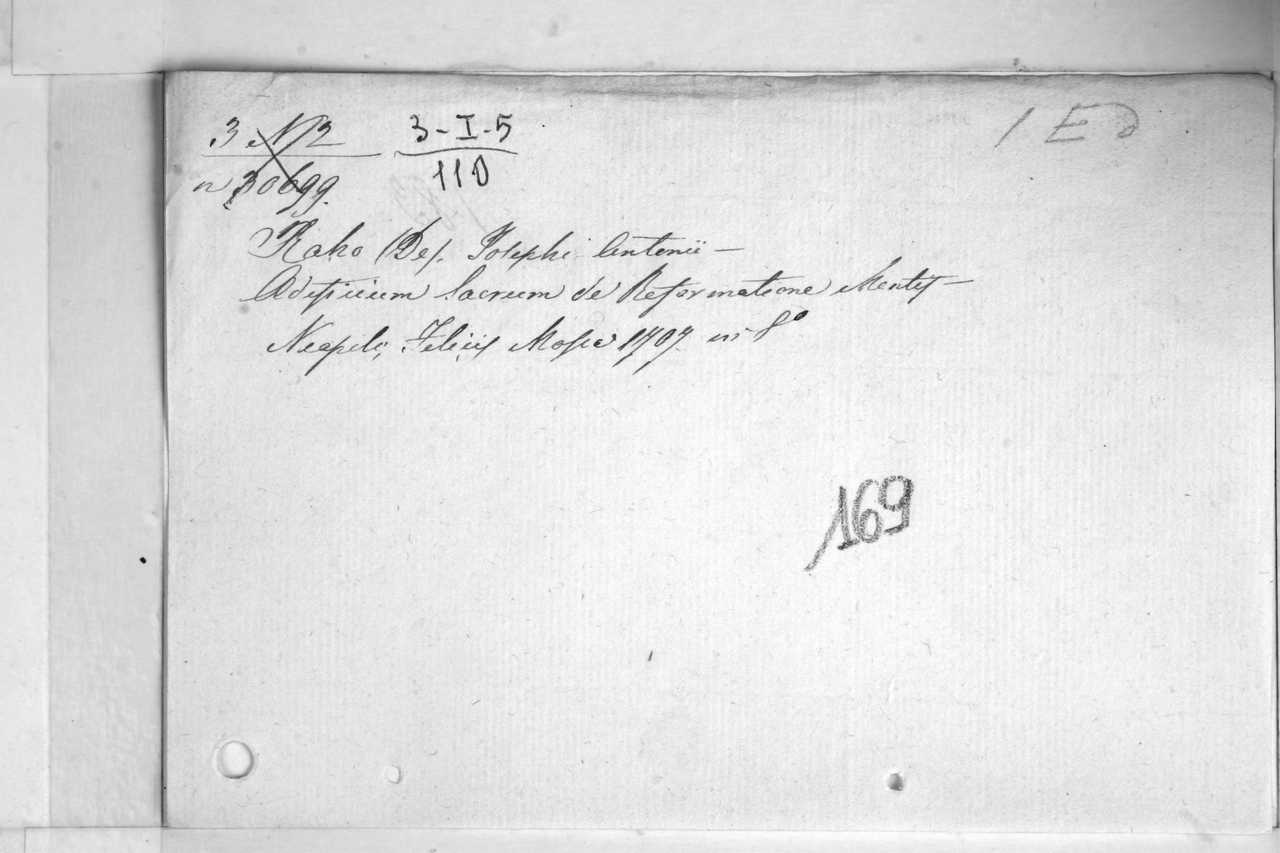 3 N 2 3-I-5
n 30699. 110
1 E
Rako (De). Josephi Antonii —
Adificium Sacrum de Reformatione Mentis —
Neapoli, Felicis Mosca 1707. in 8º
169